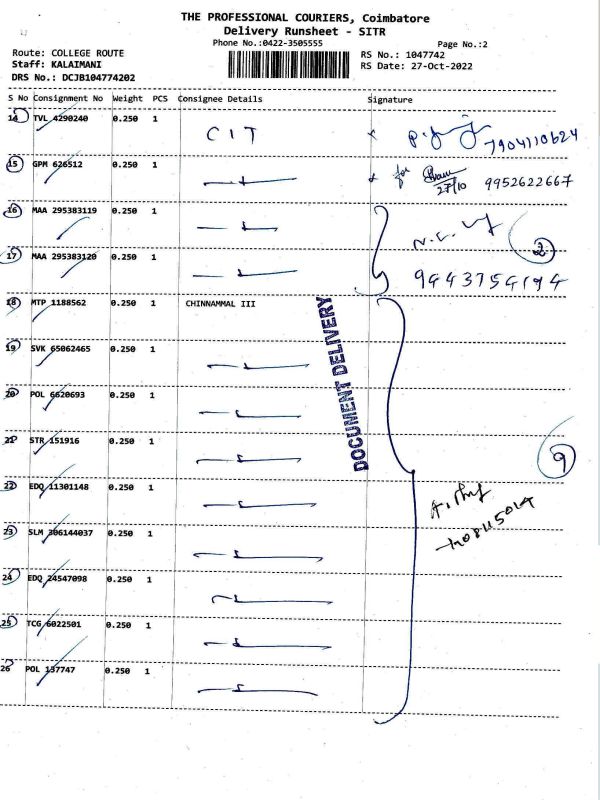 THE PROFESSIONAL COURIERS, Coimbatore
Delivery Runsheet - SITR
Phone No.:0422-3505555
Page No.:2
Route: COLLEGE ROUTE
Staff: KALAIMANI
DRS No.: DCJB104774202
RS No.: 1047742
RS Date: 27-Oct-2022
S No Consignment No Weight PCS Consignee Details Signature
14 TVL 4290240 0.250 1 CIT 7904110624
15 GPM 626512 0.250 1 for 27/10 9952622667
16 MAA 295383119 0.250 1
2
17 MAA 295383120 0.250 1 9443754194
18 MTP 1188562 0.250 1 CHINNAMMAL III
DOCUMENT DELIVERY
19 SVK 65062465 0.250 1
20 POL 6620693 0.250 1
21 STR 151916 0.250 1
9
22 EDQ 11301148 0.250 1
23 SLM 306144037 0.250 1
24 EDQ 24547098 0.250 1
25 TCG 6022501 0.250 1
26 POL 137747 0.250 1